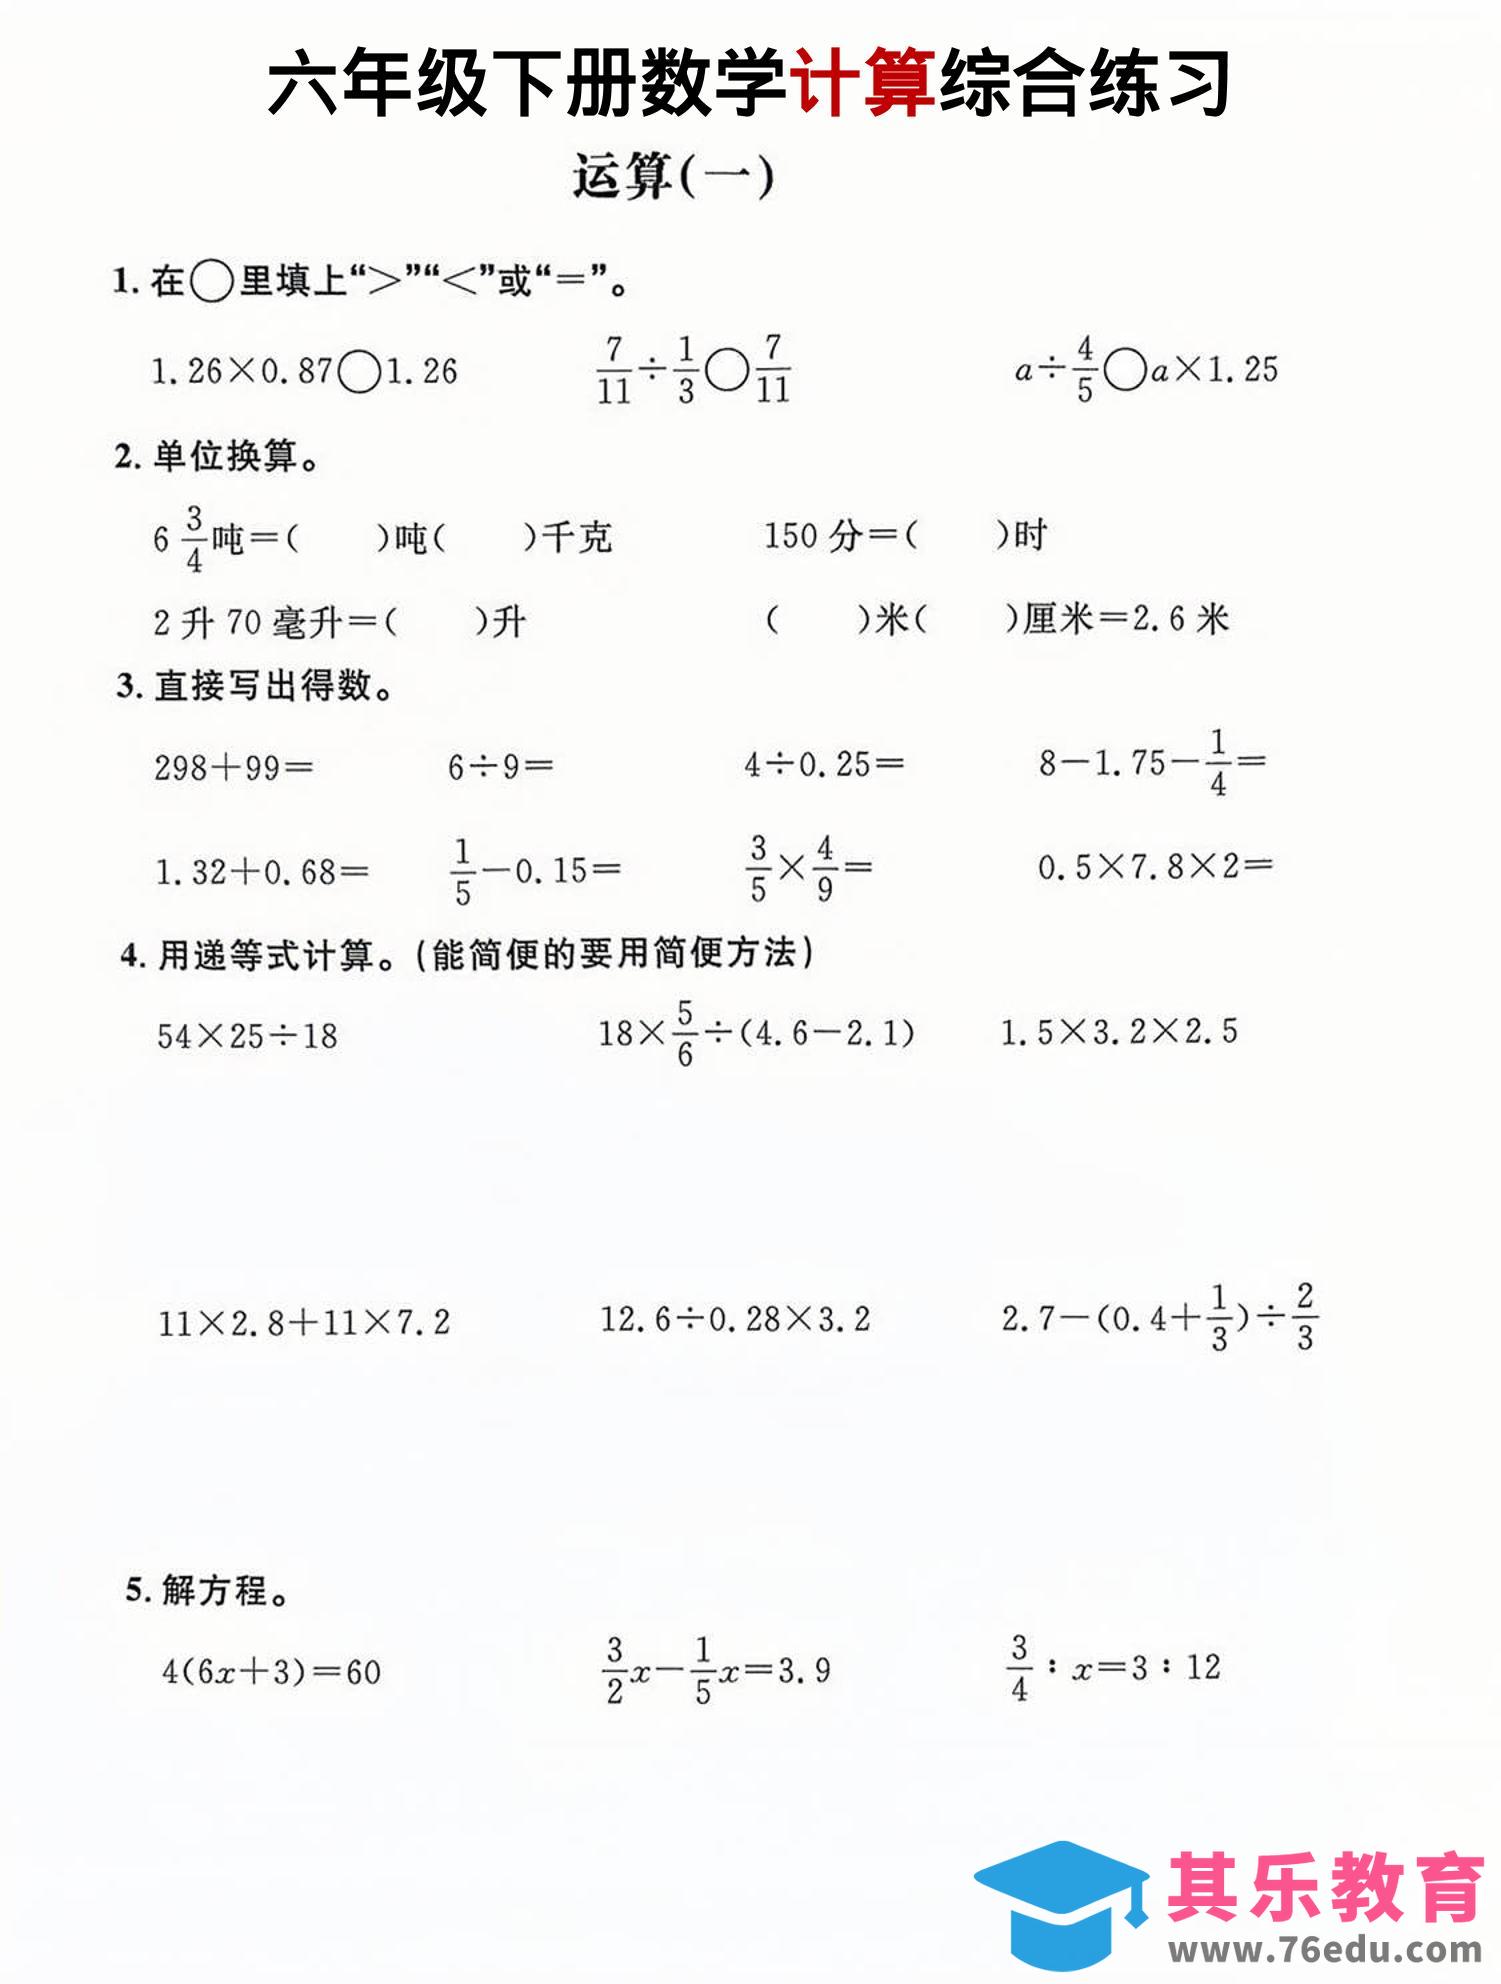 六年级下册数学计算综合练习
运算(一)
1. 在○里填上“>”“<”或“=”。
1.26×0.87○1.26 7/11÷1/3○7/11 a÷4/5○a×1.25
2. 单位换算。
6 3/4吨=( )吨( )千克 150 分=( )时
2 升 70 毫升=( )升 ( )米( )厘米=2.6 米
3. 直接写出得数。
298+99= 6÷9= 4÷0.25= 8-1.75-1/4=
1.32+0.68= 1/5-0.15= 3/5×4/9= 0.5×7.8×2=
4. 用递等式计算。(能简便的要用简便方法)
54×25÷18 18×5/6÷(4.6-2.1) 1.5×3.2×2.5
11×2.8+11×7.2 12.6÷0.28×3.2 2.7-(0.4+1/3)÷2/3
5. 解方程。
4(6x+3)=60 3/2x-1/5x=3.9 3/4∶x=3∶12
其乐教育
www.76edu.com